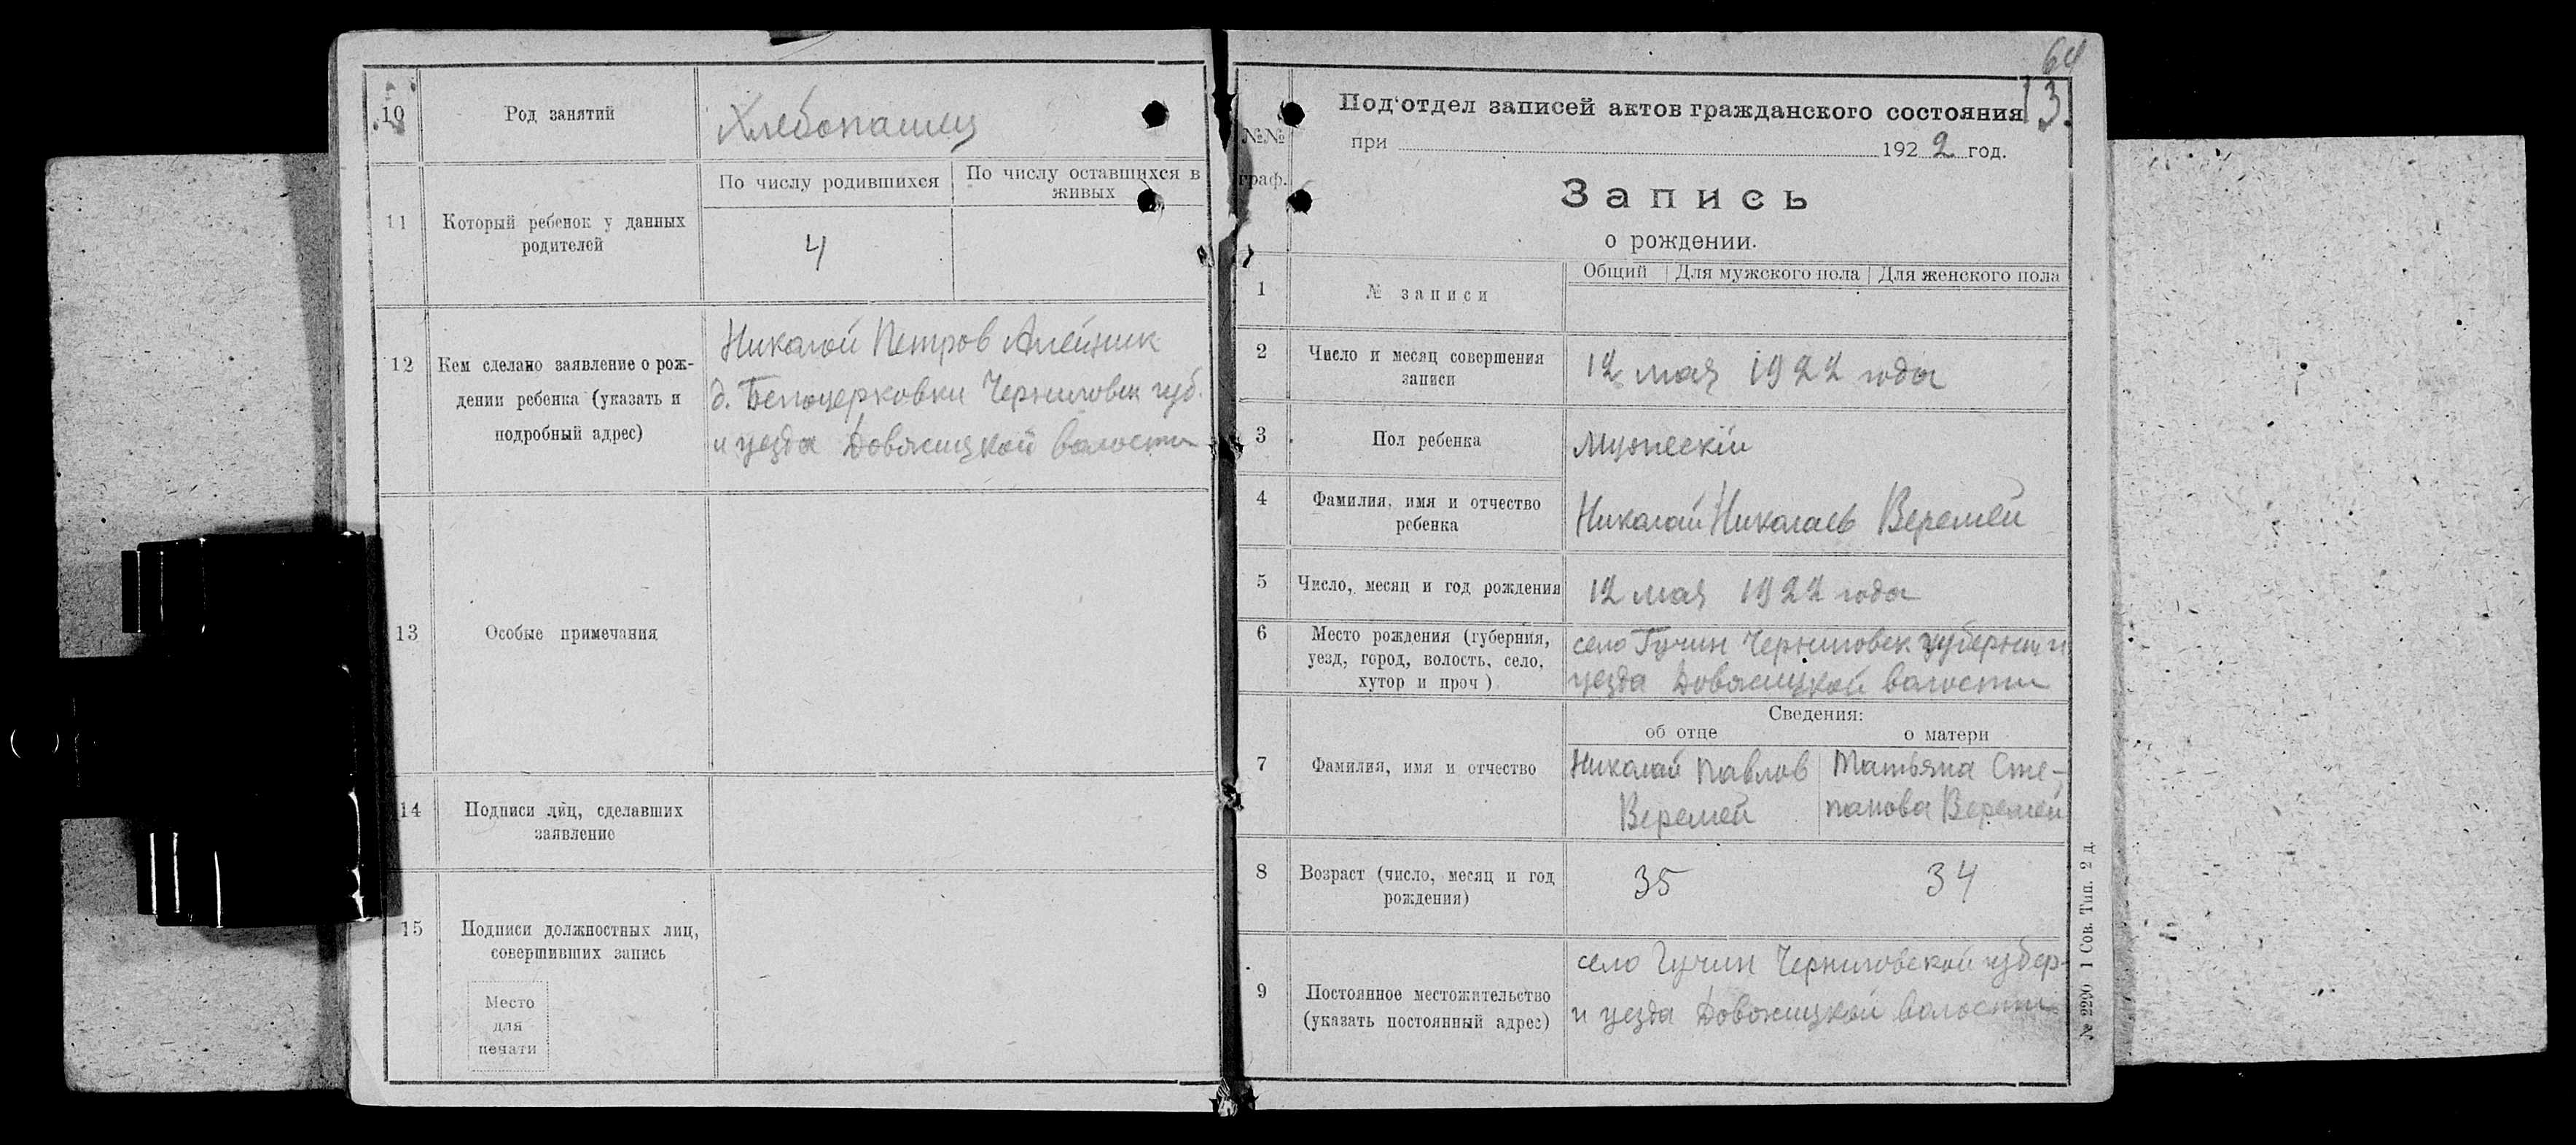 10
Род занятий
Хлебопашец
11
Который ребенок у данных
родителей
По числу родившихся
По числу оставшихся в
живых
4
12
Кем сделано заявление о рож-
дении ребенка (указать и
подробный адрес)
Николай Петров Алейник
д. Белоцерковки Черниговск губ.
и уезда Довжицкой волости
13
Особые примечания
14
Подписи лиц, сделавших
заявление
15
Подписи должностных лиц,
совершивших запись
Место
для
печати
64
13.
№№
граф.
Под'отдел записей актов гражданского состояния
при 1922 год.
Запись
о рождении.
1
№ записи
Общий
Для мужского пола
Для женского пола
2
Число и месяц совершения
записи
12 мая 1922 года
3
Пол ребенка
мужескій
4
Фамилия, имя и отчество
ребенка
Николай Николаев Веремей
5
Число, месяц и год рождения
12 мая 1922 года
6
Место рождения (губерния,
уезд, город, волость, село,
хутор и проч)
село Гучин Черниговск губернии
уезда Довжицкой волости
Сведения:
об отце
о матери
7
Фамилия, имя и отчество
Николай Павлов
Веремей
Татьяна Сте-
панова Веремей
8
Возраст (число, месяц и год
рождения)
35
34
9
Постоянное местожительство
(указать постоянный адрес)
село Гучин Черниговской губер-
и уезда Довжицкой волости
№ 2290 1 Сов. Тип. 2 д.